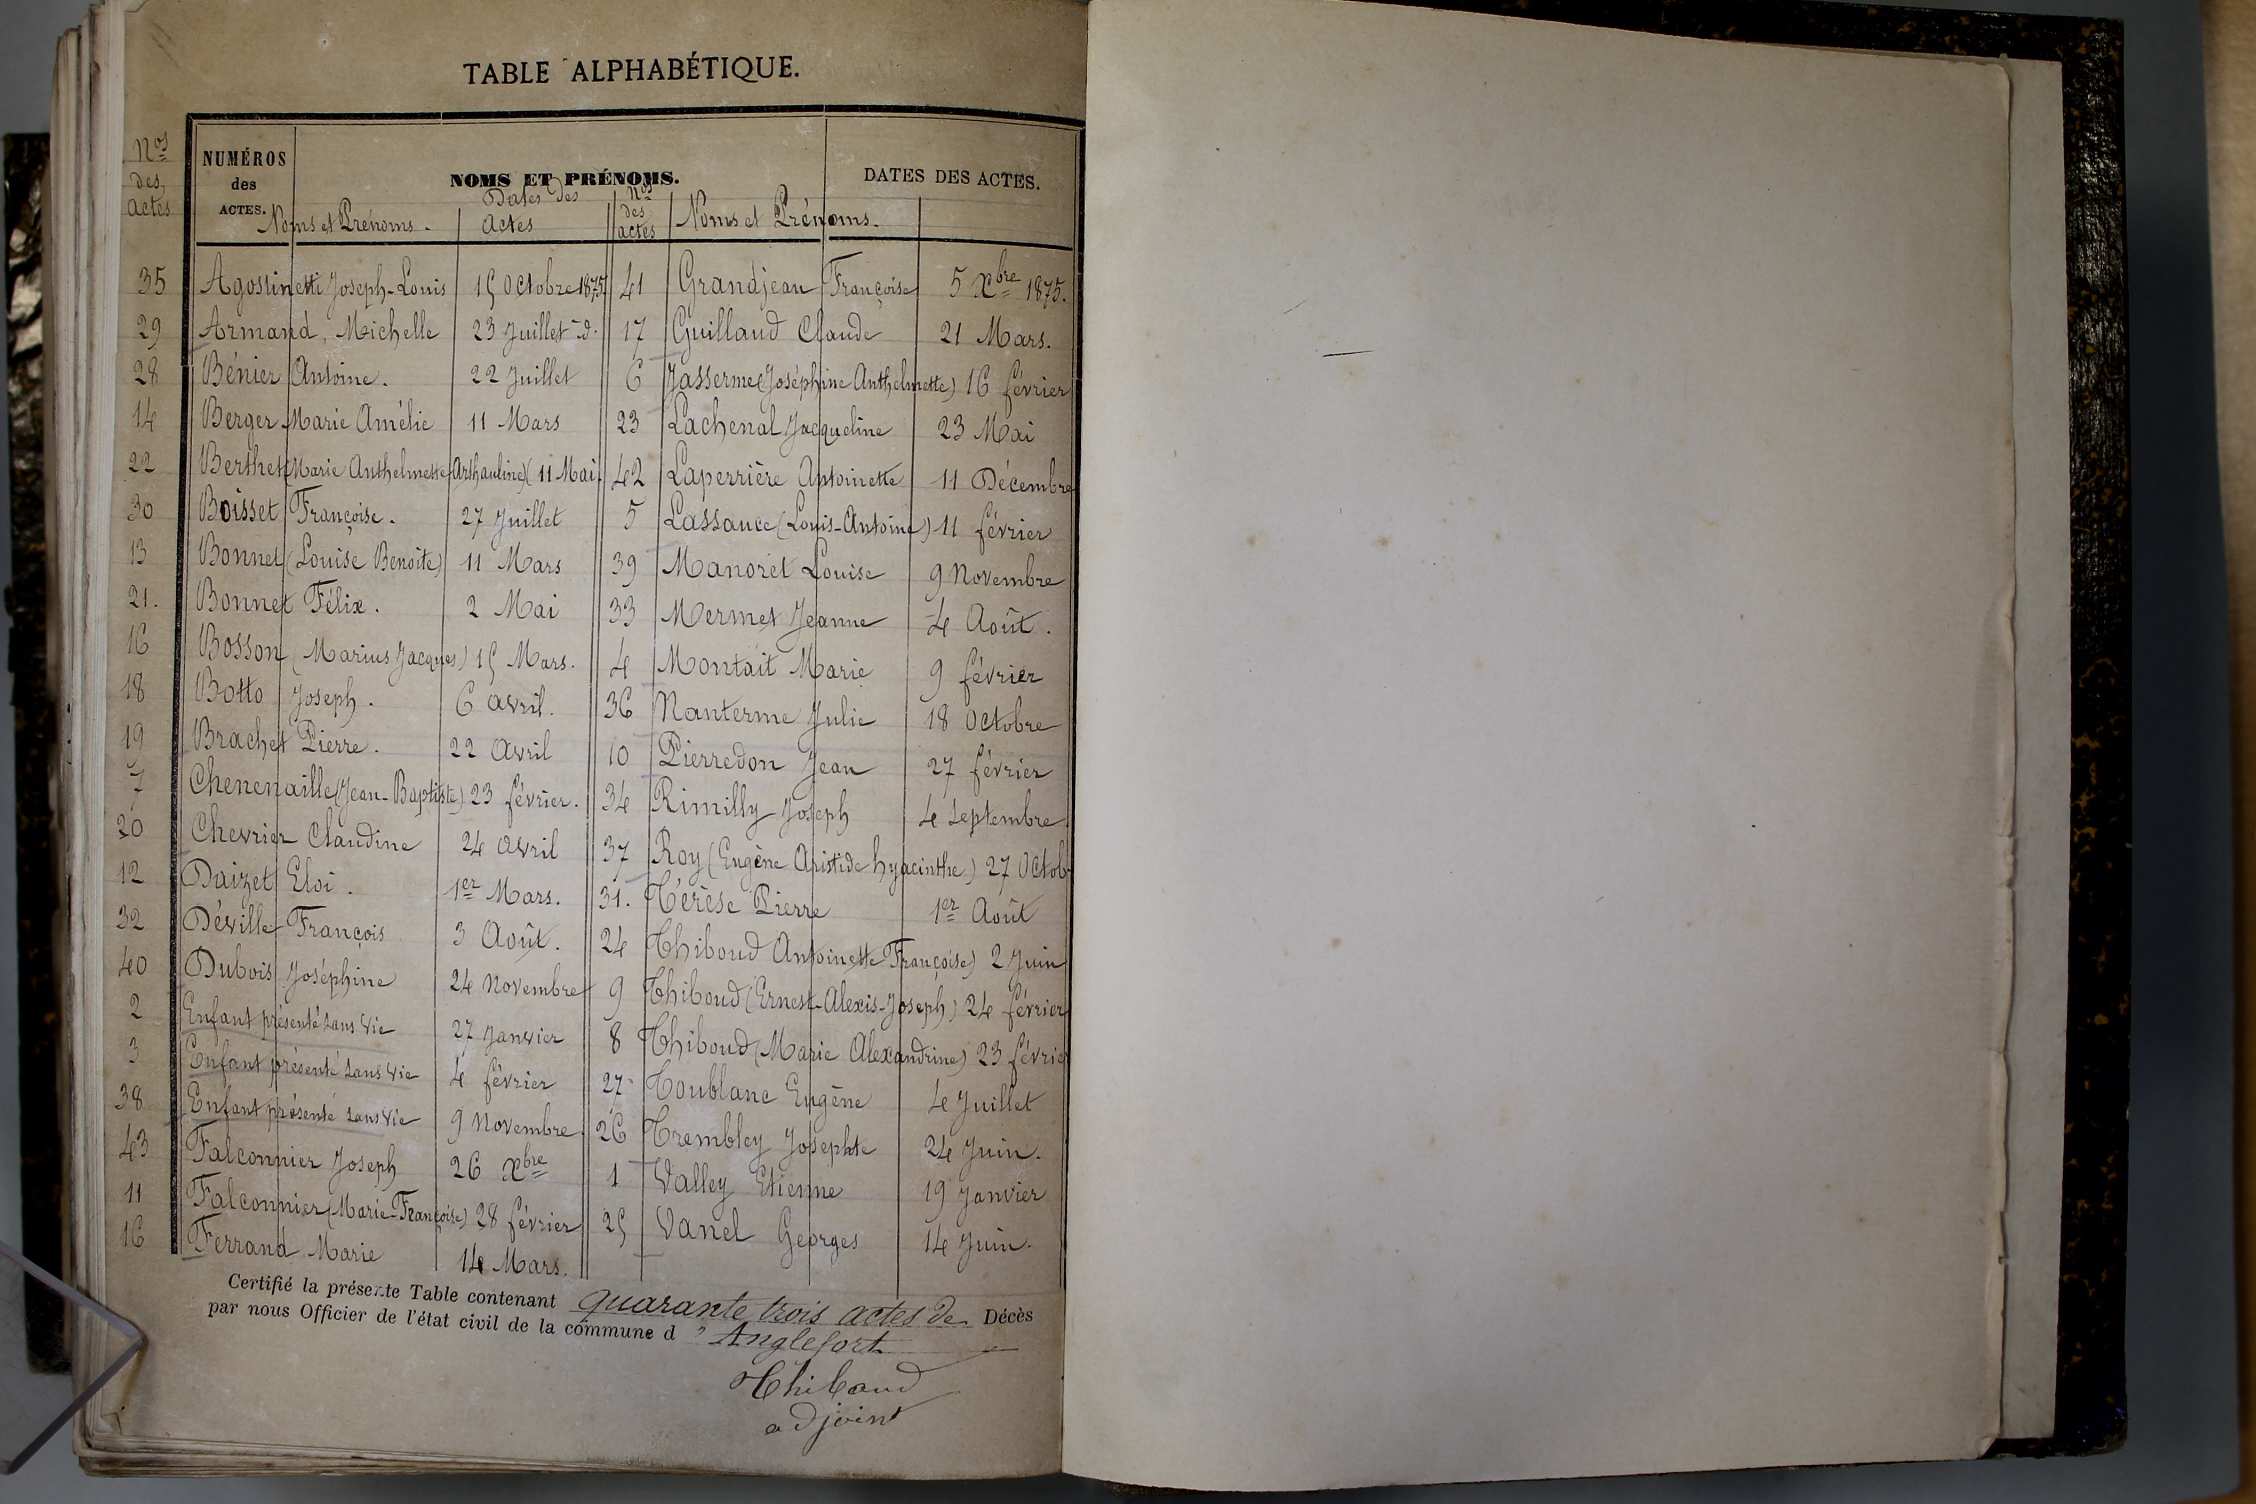 TABLE ALPHABÉTIQUE.
Nos des actes NUMÉROS des ACTES. NOMS ET PRÉNOMS. DATES DES ACTES.
Noms et Prénoms. Dates des Actes Nos des actes Noms et Prénoms.
35 Agostinetti Joseph-Louis 15 Octobre 1875 41 Grandjean Françoise 5 Xbre 1875.
29 Armand, Michelle 23 Juillet d. 17 Guilland Claude 21 Mars.
28 Bénier Antoine. 22 Juillet 6 Jasserme (Joséphine Anthelmette) 16 février
14 Berger Marie Amélie 11 Mars 23 Lachenal Jacqueline 23 Mai
22 Berthet (Marie Anthelmette Arthauline) 11 Mai. 42 Laperrière Antoinette 11 Décembre
30 Boisset Françoise. 27 Juillet 5 Lassauce (Louis-Antoine) 11 février
13 Bonnet (Louise Benoîte) 11 Mars 39 Manoret Louise 9 Novembre
21. Bonnet Félix. 2 Mai 33 Mermet Jeanne 4 Août.
16 Bosson (Marius Jacques) 15 Mars. 4 Montait Marie 9 février
18 Botto Joseph. 6 avril. 36 Nanterme Julie 18 Octobre
19 Brachet Pierre. 22 avril 10 Pierredon Jean 27 février
7 Chenenaille (Jean-Baptiste) 23 février. 34 Rimilly Joseph 4 Septembre
20 Chevrier Claudine 24 avril 37 Roy (Eugène Aristide hyacinthe) 27 Octob
12 Daizet Eloi. 1er Mars. 31. Térèse Pierre 1er Août
32 Déville François 3 Août. 24 Thiboud Antoinette Françoise) 2 Juin
40 Dubois Joséphine 24 Novembre 9 Thiboud (Ernest-Alexis-Joseph) 24 février
2 Enfant présenté sans vie 27 Janvier 8 Thiboud (Marie Alexandrine) 23 févrie
3 Enfant présenté sans vie 4 février 27 Toublanc Eugène 4 Juillet
38 Enfant présenté sans vie 9 Novembre 26 Trembley Josephte 24 Juin.
43 Falconnier Joseph 26 Xbre 1 Valley Etienne 19 Janvier
11 Falconnier (Marie-Françoise) 28 février 25 Vanel Georges 14 Juin.
16 Ferrand Marie 14 Mars.
Certifié la présente Table contenant quarante trois actes de Décès
par nous Officier de l'état civil de la commune d'Anglefort
Thiboud
adjoint